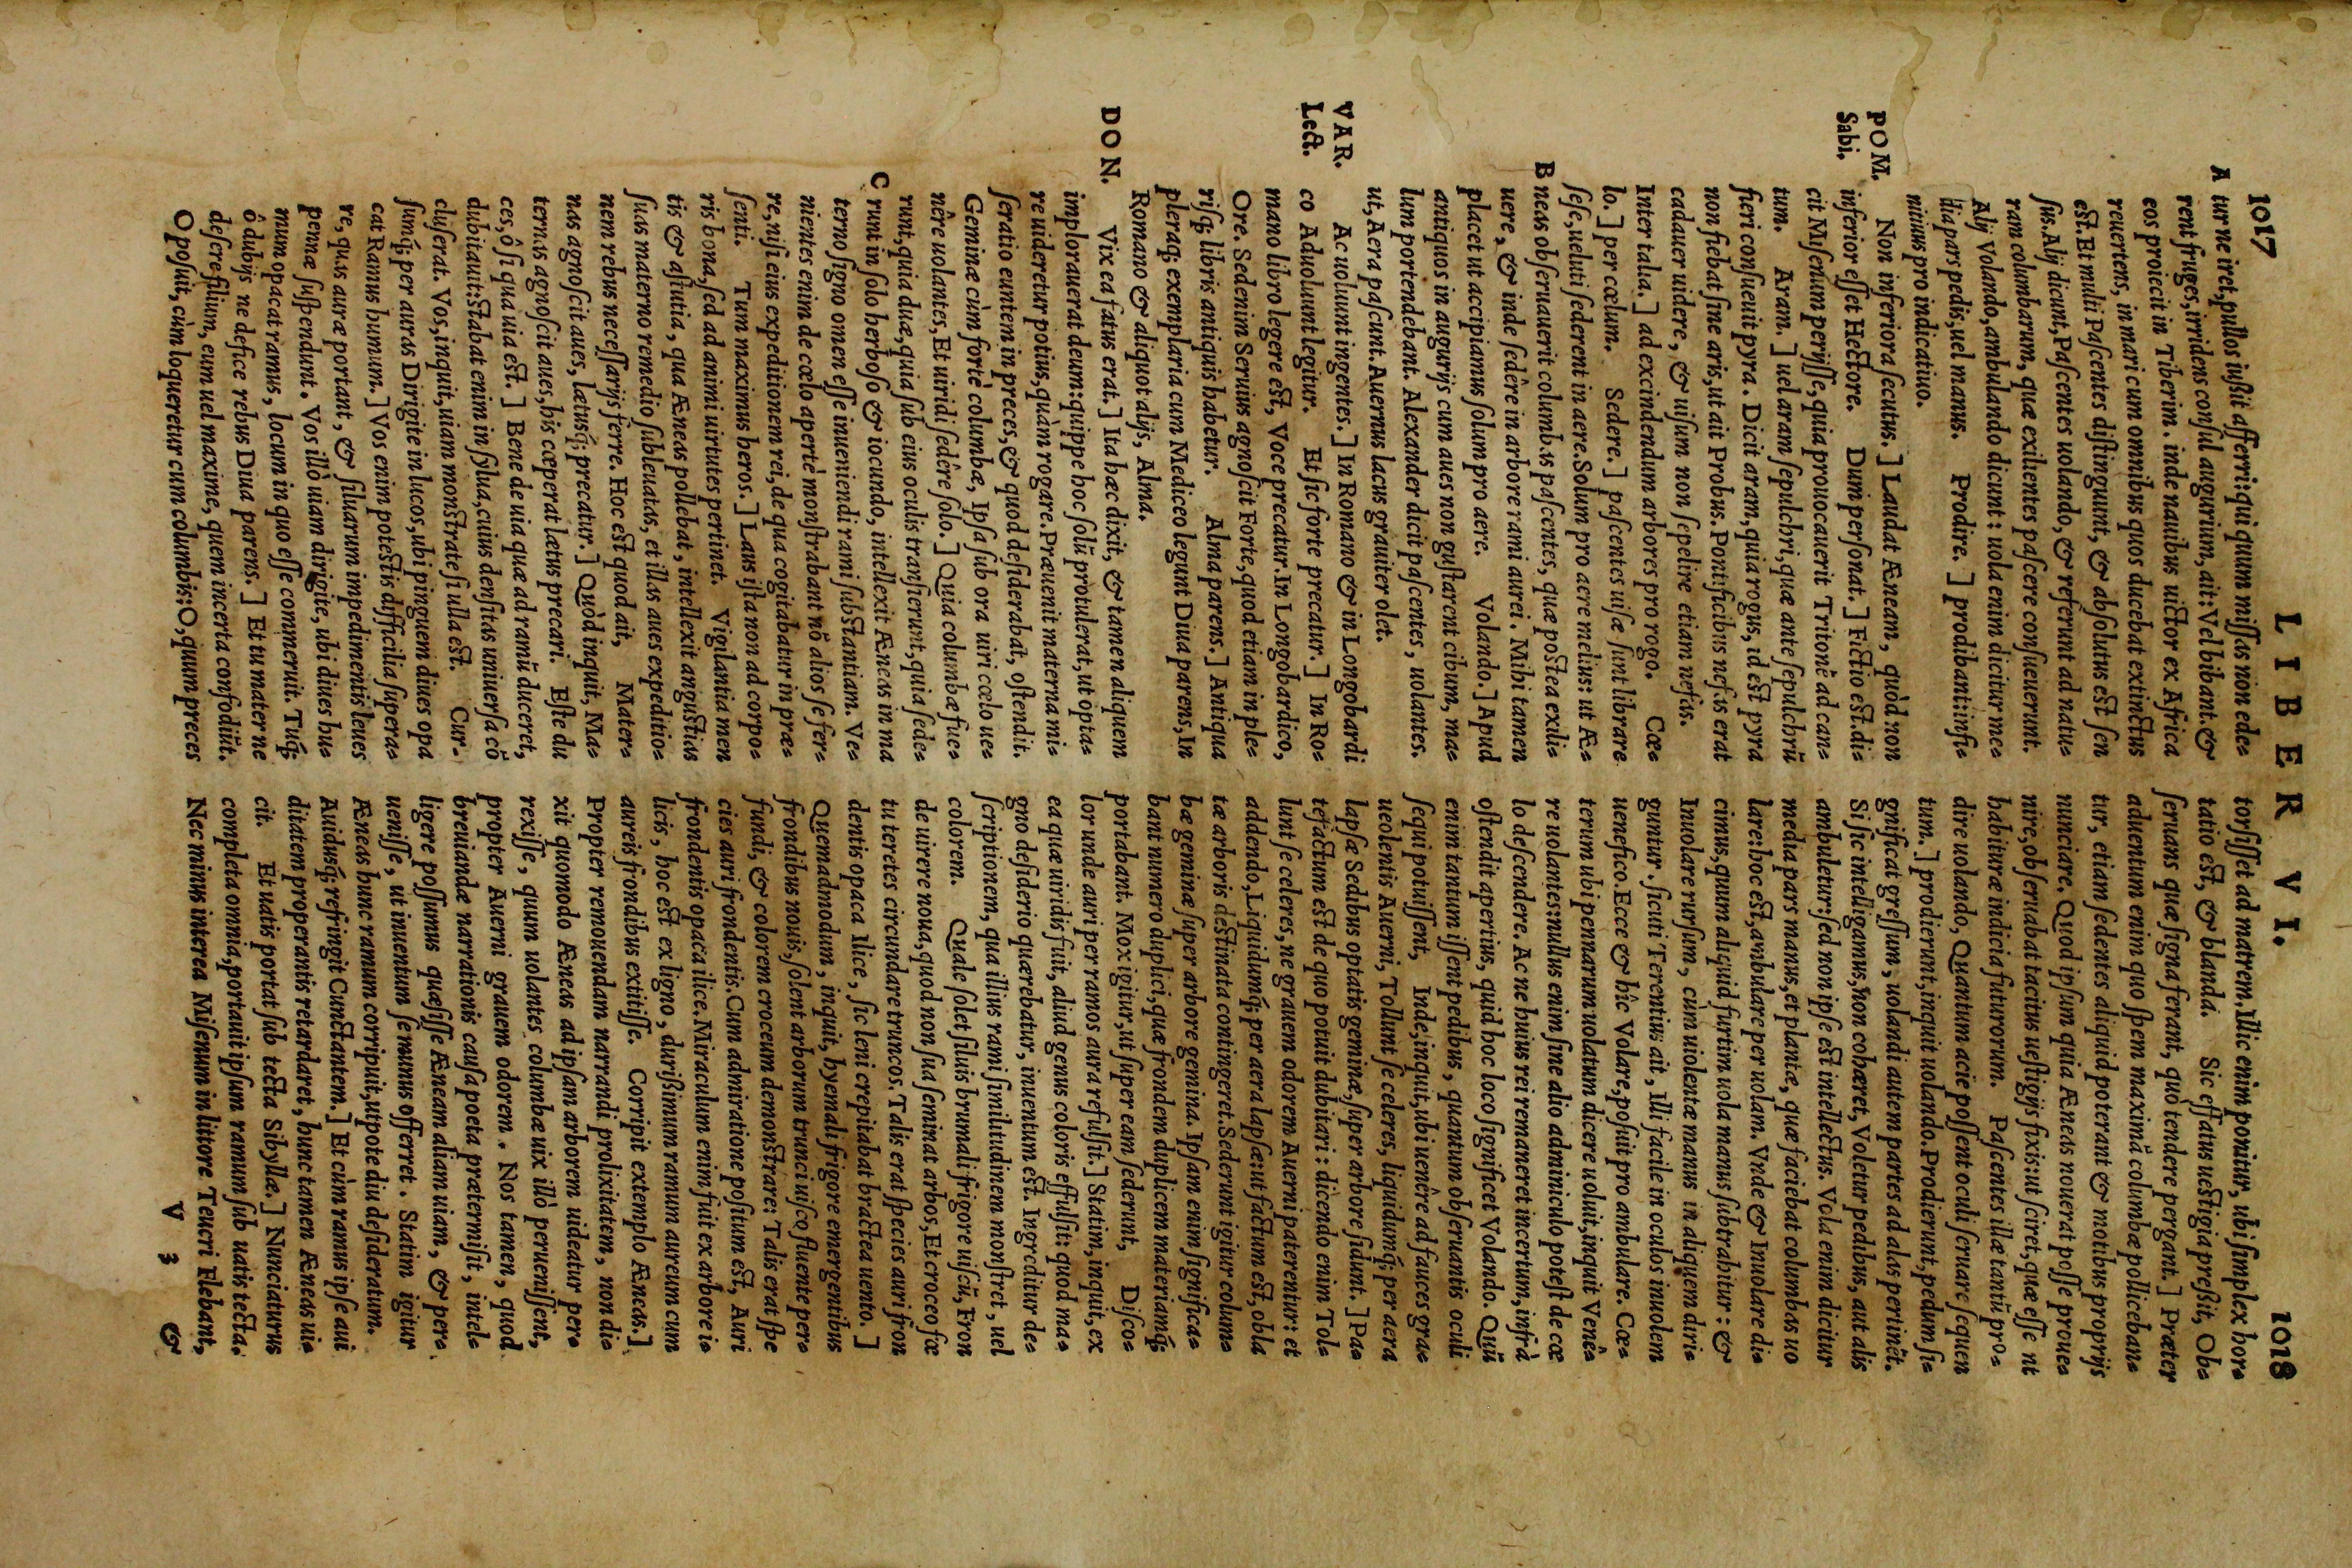 1017 LIBER VI. 1018
A tur ne iret, pullos iußit afferri: qui quum missus non ede⸗
rent fruges, irridens consul augurium, ait: Vel bibant. &
eos proiecit in Tiberim. inde nauibus uictor ex Africa
reuertens, in mari cum omnibus quos ducebat extinctus
est. Et multi Pascentes distinguunt, & absolutus est sen
sus. Alij dicunt, Pascentes uolando, & referunt ad natu⸗
ram columbarum, quæ exilientes pascere consueuerunt.
Alij Volando, ambulando dicunt: uola enim dicitur me⸗
dia pars pedis, uel manus. Prodire.] prodibant: infi⸗
nitiuus pro indicatiuo.
POM. Sabi.
Non inferiora secutus.] Laudat Æneam, quòd non
inferior esset Hectore. Dum personat.] Fictio est. di⸗
cit Misenum perijsse, quia prouocauerit Tritonẽ ad can⸗
tum. Aram.] uel aram sepulchri, quæ ante sepulchrũ
fieri consueuit pyra. Dicit aram, quia rogus, id est pyra
non fiebat sine aris, ut ait Probus. Pontificibus nefas erat
cadauer uidere, & uisum non sepelire etiam nefas.
Inter talia.] ad excindendum arbores pro rogo. Cæ⸗
lo.] per cœlum. Sedere.] pascentes uisæ sunt librare
sese, ueluti sederent in aere. Solum pro aere melius: ut Æ⸗
B neas obseruauerit columbas pascentes, quæ postea exili⸗
uere, & inde sedêre in arbore rami aurei. Mihi tamen
placet ut accipiamus solum pro aere. Volando.] Apud
antiquos in augurijs cum aues non gustarent cibum, ma⸗
lum portendebant. Alexander dicit pascentes, uolantes.
ut, Aera pascunt. Auernus lacus grauiter olet.
VAR. Lect.
Ac uoluunt ingentes.] In Romano & in Longobardi
co Aduoluunt legitur. Et sic forte precatur.] In Ro⸗
mano libro legere est, Voce precatur. In Longobardico,
Ore. Sed enim Seruius agnoscit Forte, quod etiam in ple⸗
risq; libris antiquis habetur. Alma parens.] Antiqua
pleraq; exemplaria cum Mediceo legunt Diua parens, In
Romano & aliquot alijs, Alma.
DON.
Vix ea fatus erat.] Ita hæc dixit, & tamen aliquem
implorauerat deum: quippe hoc solũ protulerat, ut opta⸗
re uideretur potius, quàm rogare. Præuenit materna mi⸗
seratio euntem in preces, & quod desiderabat, ostendit.
Geminæ cùm fortè columbæ, Ipsa sub ora uiri cœlo ue⸗
nêre uolantes, Et uiridi sedêre solo.] Quia columbæ fue⸗
runt, quia duæ, quia sub eius oculis transierunt, quia sede⸗
C runt in solo herboso & iocundo, intellexit Æneas in ma
terno signo omen esse inueniendi rami substantiam. Ve⸗
nientes enim de cœlo apertè monstrabant nõ alios se fer⸗
re, nisi eius expeditionem rei, de qua cogitabatur in præ⸗
senti. Tum maximus heros.] Laus ista non ad corpo⸗
ris bona, sed ad animi uirtutes pertinet. Vigilantia men
tis & astutia, qua Æneas pollebat, intellexit angustias
suas materno remedio subleuatas, et illas aues expeditio⸗
nem rebus necessarijs ferre. Hoc est quod ait, Mater⸗
nas agnoscit aues, lætusq́; precatur.] Quòd inquit, Ma⸗
ternas agnoscit aues, his cœperat lætus precari. Este du
ces, ô si qua uia est.] Bene de uia quæ ad ramũ duceret,
dubitauit: stabat enim in sylua, cuius densitas uniuersa cõ
cluserat. Vos, inquit, uiam monstrate si ulla est. Cur⸗
sumq́; per auras Dirigite in lucos, ubi pinguem diues opa
cat Ramus humum.] Vos enim potestis difficilia supera⸗
re, quas auræ portant, & siluarum impedimentis leues
pennæ suspendunt. Vos illò uiam dirigite, ubi diues hu⸗
mum opacat ramus, locum in quo esse commeruit. Tuq́;
ô dubijs ne defice rebus Diua parens.] Et tu mater ne
desere filium, eum uel maxime, quem incerta confodiũt.
O posuit, cùm loqueretur cum columbis: O, quum preces
torsisset ad matrem. Illic enim ponitur, ubi simplex hor⸗
tatio est, & blanda. Sic effatus uestigia preßit, Ob⸗
seruans quæ signa ferant, quò tendere pergant.] Præter
aduentum enim quo spem maximã columbæ polliceban⸗
tur, etiam sedentes aliquid poterant & motibus proprijs
nunciare. Quod ipsum quia Æneas nouerat posse proue⸗
nire, obseruabat tacitus uestigijs fixis: ut sciret, quæ esse nt
habituræ indicia futurorum. Pascentes illæ tantũ pro⸗
dire uolando, Quantum acie possent oculi seruare sequen
tum.] prodierunt, inquit uolando. Prodierunt, pedum si⸗
gnificat gressum, uolandi autem partes ad alas pertinẽt.
Si sic intelligamus, non cohæret, Voletur pedibus, aut alis
ambuletur: sed non ipse est intellectus. Vola enim dicitur
media pars manus, et plantæ, quæ faciebat columbas uo
lare: hoc est, ambulare per uolam. Vnde & Inuolare di⸗
cimus, quum aliquid furtim uola manus subtrahitur: &
Inuolare rursum, cùm uiolentæ manus in aliquem diri⸗
guntur. sicuti Terentius ait, Illi facile in oculos inuolem
uenefico. Ecce & hîc Volare, posuit pro ambulare. Cæ⸗
terum ubi pennarum uolatum dicere uoluit, inquit Venê⸗
re uolantes: nullus enim sine alio adminiculo potest de cœ
lo descendere. Ac ne huius rei remaneret incertum, infrà
ostendit apertius, quid hoc loco significet Volando. Quũ
enim tantum issent pedibus, quantum obseruantis oculi
sequi potuissent, Inde, inquit, ubi uenêre ad fauces gra⸗
ueolentis Auerni, Tollunt se celeres, liquidumq́; per aera
lapsæ Sedibus optatis geminæ, super arbore sidunt.] Pa⸗
tefactum est de quo potuit dubitari: dicendo enim Tol⸗
lunt se celeres, ne grauem odorem Auerni paterentur: et
addendo, Liquidumq́; per aera lapsæ: ut factum est, obla
tæ arboris destinata contingeret. Sederunt igitur colum⸗
bæ geminæ super arbore gemina. Ipsam enim significa⸗
bant numero duplici, quæ frondem duplicem materiamq́;
portabant. Mox igitur, ut super eam sederunt, Disco⸗
lor unde auri per ramos aura refulsit.] Statim, inquit, ex
ea quæ uiridis fuit, aliud genus coloris effulsit: quod ma⸗
gno desiderio quærebatur, inuentum est. Ingreditur de⸗
scriptionem, qua illius rami similitudinem monstret, uel
colorem. Quale solet siluis brumali frigore uiscũ, Fron
de uirere noua, quod non sua seminat arbos, Et croceo fœ
tu teretes circundare truncos. Talis erat species auri fron
dentis opaca Ilice, sic leni crepitabat bractea uento.]
Quemadmodum, inquit, hyemali frigore emergentibus
frondibus nouis, solent arborum trunci uisco fluente per⸗
fundi, & colorem croceum demonstrare: Talis erat spe
cies auri frondentis. Cum admiratione positum est, Auri
frondentis opaca ilice. Miraculum enim fuit ex arbore i⸗
licis, hoc est ex ligno, durißimum ramum aureum cum
aureis frondibus extitisse. Corripit extemplo Æneas.]
Propter remouendam narrandi prolixitatem, non di⸗
xit quomodo Æneas ad ipsam arborem uideatur per⸗
rexisse, quum uolantes columbæ uix illò peruenissent,
propter Auerni grauem odorem. Nos tamen, quod
breuiandæ narrationis causa poeta prætermisit, intel⸗
ligere possumus quæsisse Æneam aliam uiam, & per⸗
uenisse, ut inuentum se munus offerret. Statim igitur
Æneas hunc ramum corripuit, utpote diu desideratum.
Auidusq́; refringit Cunctantem.] Et cùm ramus ipse aui
ditatem properantis retardaret, hunc tamen Æneas ui⸗
cit. Et uatis portat sub tecta Sibyllæ.] Nunciaturus
completa omnia, portauit ipsum ramum sub uatis tecta.
Nec minus interea Misenum in littore Teucri Flebant,
V 3 &